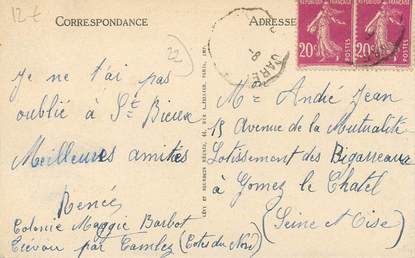 12 €
CORRESPONDANCE
ADRESSE
RÉPUBLIQUE FRANÇAISE
20c POSTES
RÉPUBLIQUE FRANÇAISE
20c POSTES
22
Je ne t'ai pas
oublié à St Brieux
Meilleures amitiés
Renée
Colonie Maggie Barbot
par Camlez (Cotes du Nord)
LÉVY ET NEURDEIN RÉUNIS, 44, RUE LETELLIER, PARIS
Mr André Jean
15 Avenue de la Mutualité
Lotissement des Bigarreaux
à Gomez le Chatel
(Seine et Oise)